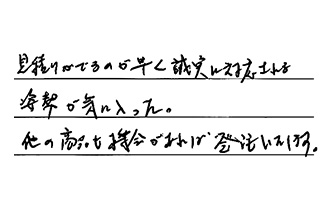 見積りがでるのが早く誠実に対応される
姿勢が気に入った。
他の商品も機会があれば発注いたします。